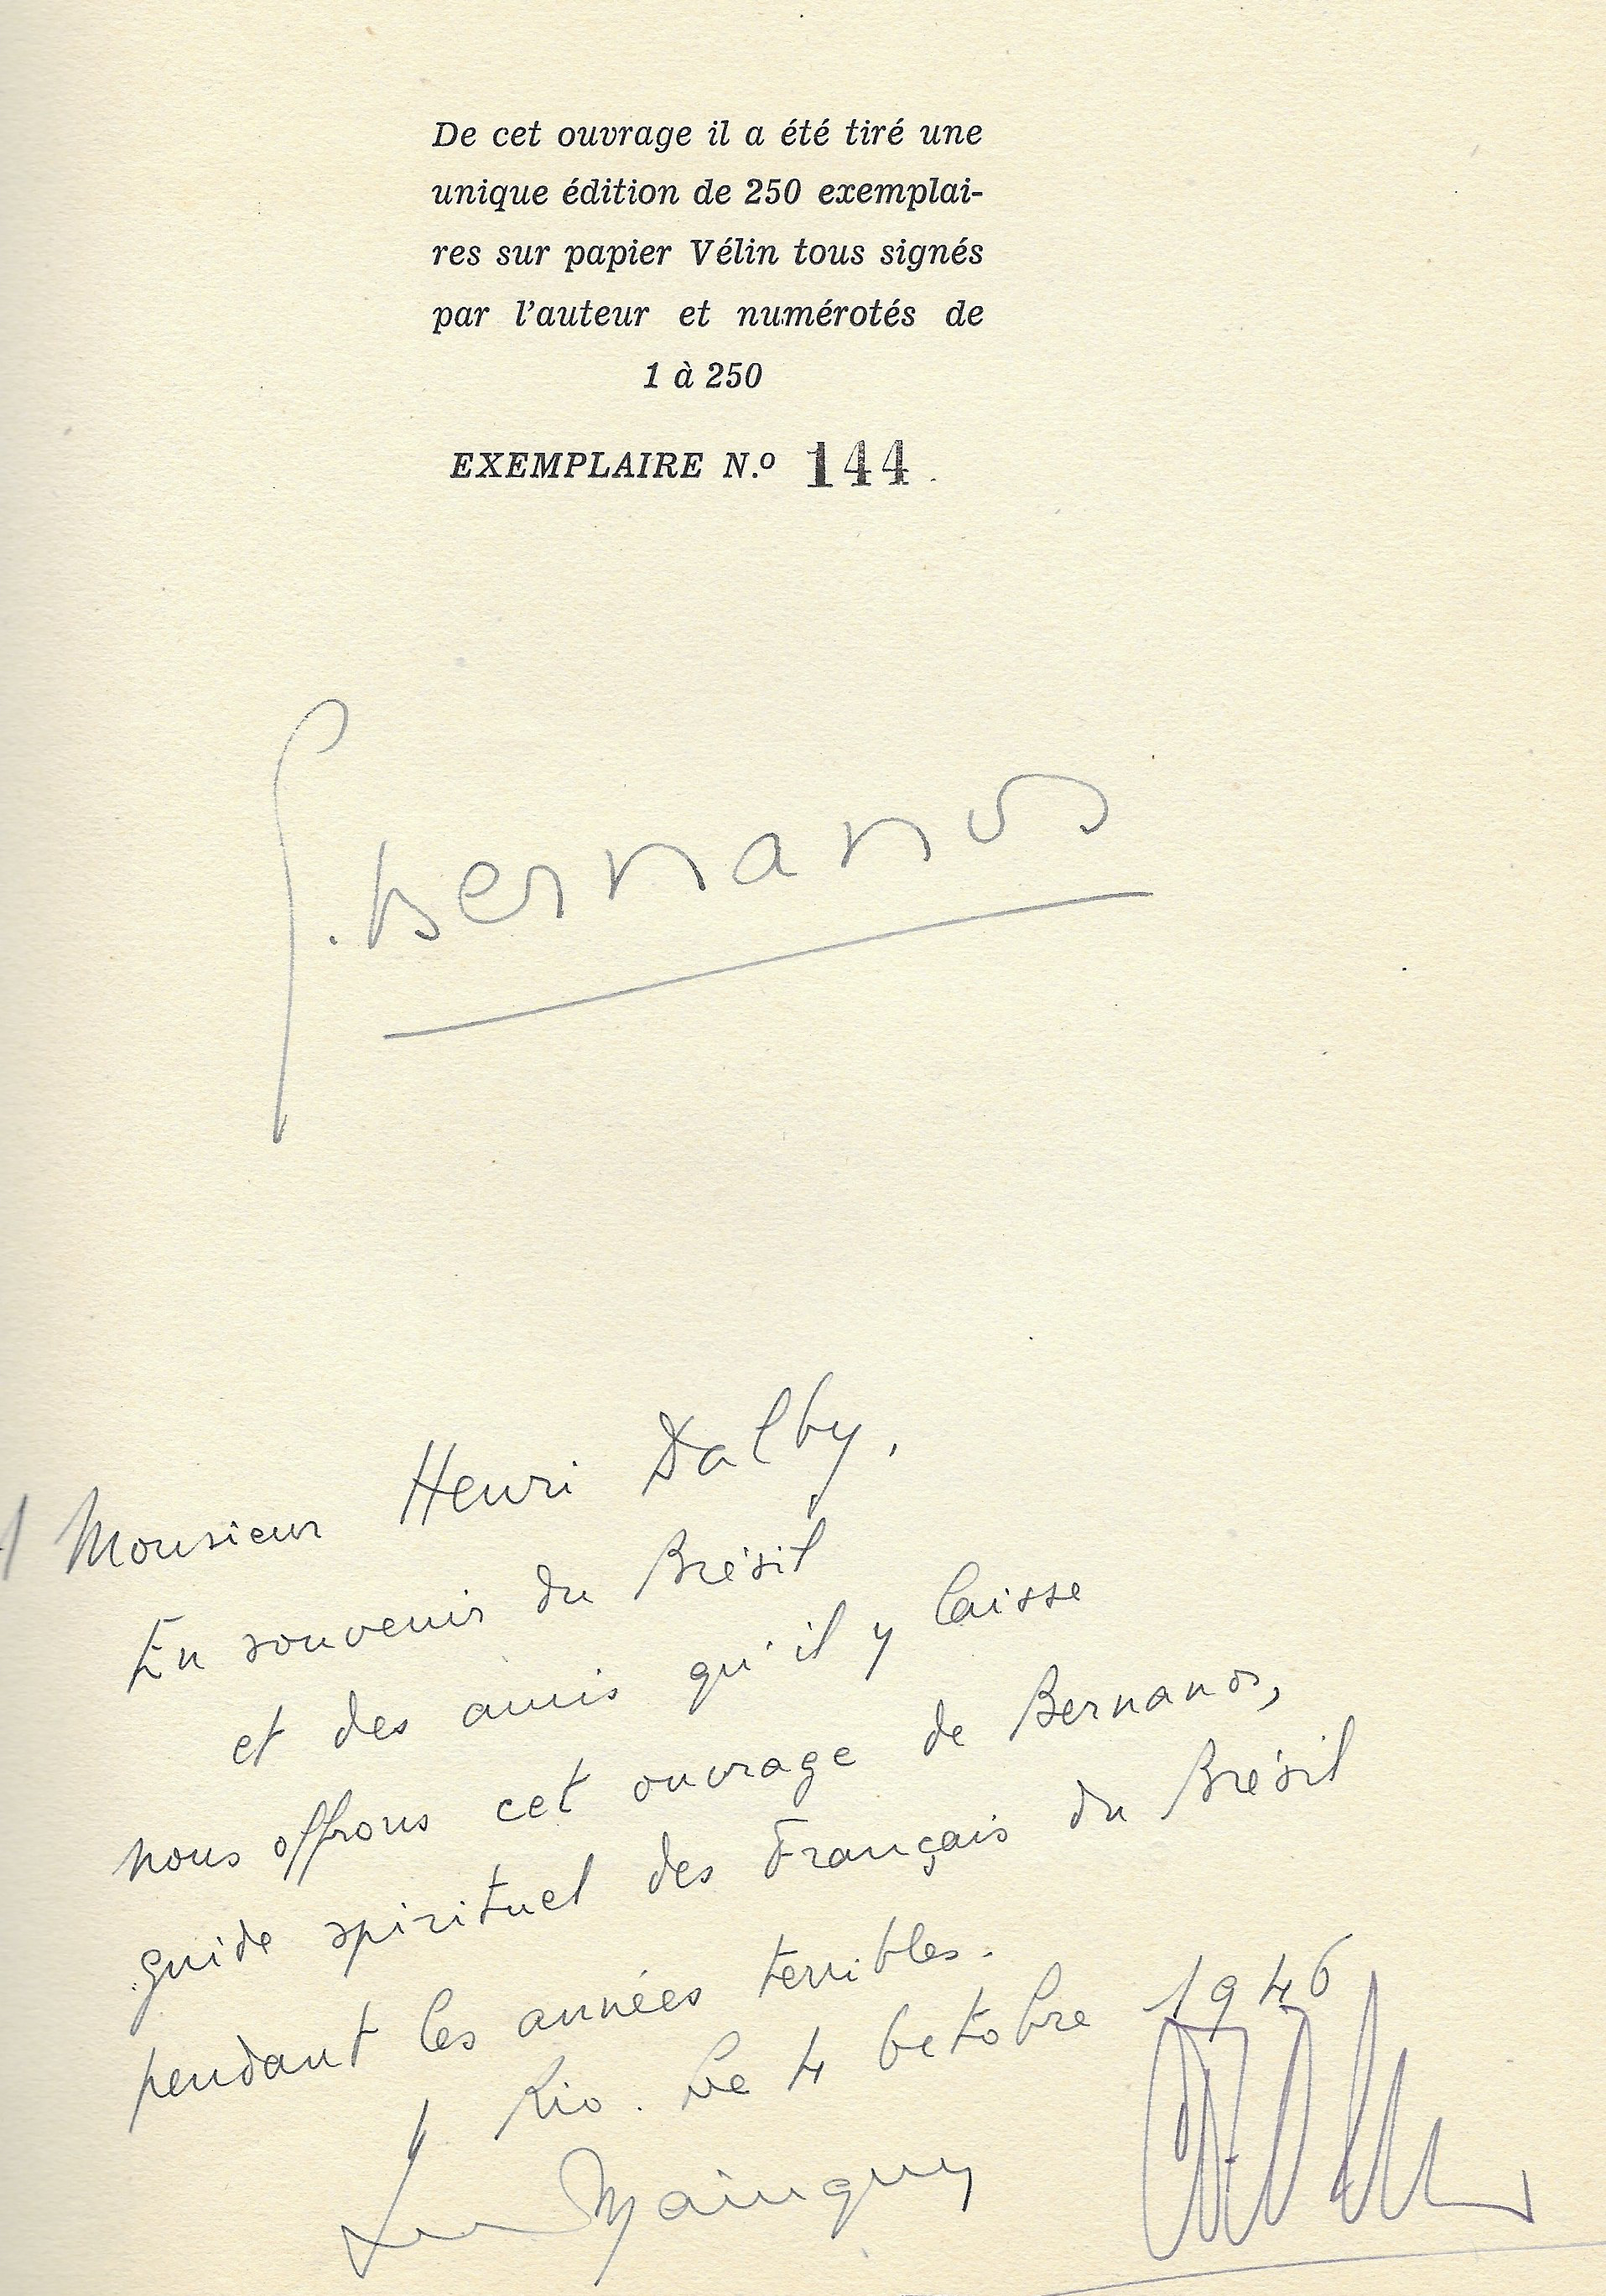 De cet ouvrage il a été tiré une
unique édition de 250 exemplai-
res sur papier Vélin tous signés
par l'auteur et numérotés de
1 à 250
EXEMPLAIRE N.º 144
G. Bernanos
A Monsieur Henri Dalby,
En souvenir du Brésil
et des amis qu'il y laisse
nous offrons cet ouvrage de Bernanos,
guide spirituel des Français du Brésil
pendant les années terribles.
Rio. Le 4 Octobre 1946
Mainguy